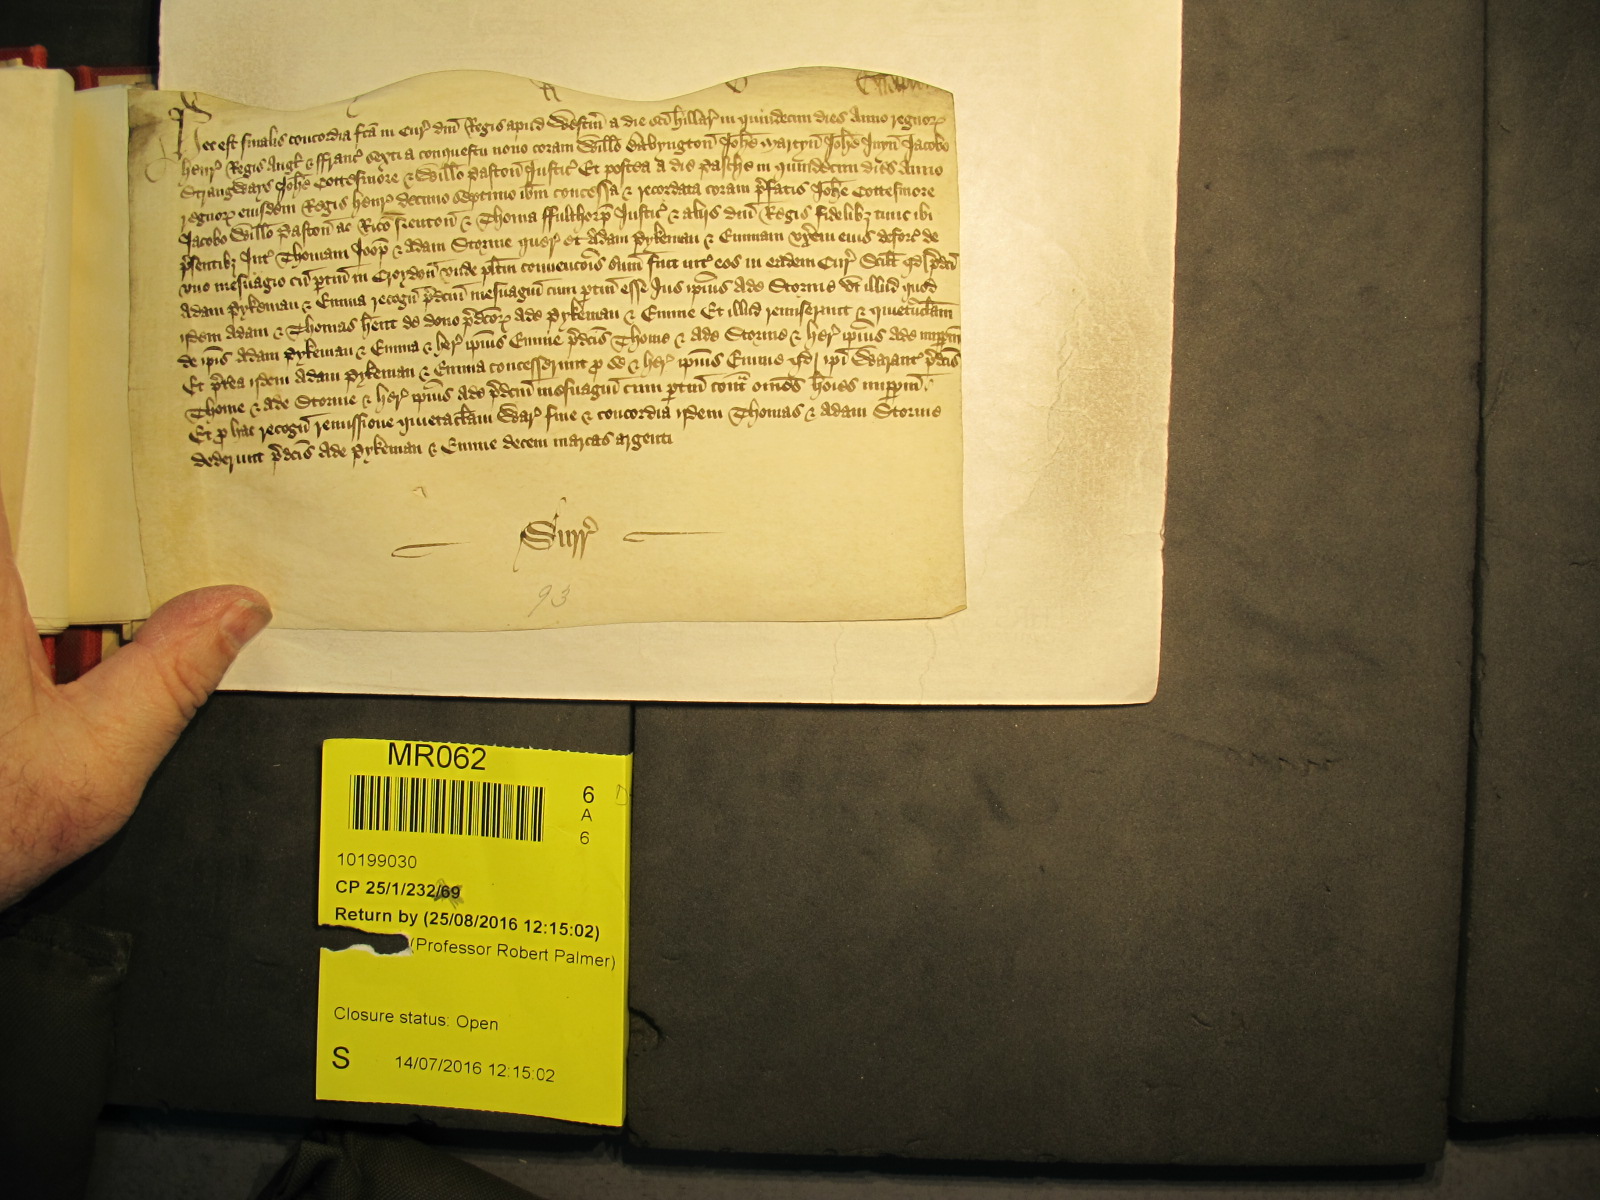 Hec est finalis concordia fca in Cur dni Regis apud Westm a die sci Hillar in quindecim dies Anno regnor
Henr Regis Angl & ffranc sexti a conquestu nono coram Willo Babyngton Johe Martyn Johe Juyn Jacobo
Strangways Johe Cottesmore & Willo Paston Justic Et postea a die Pasche in quindecim dies Anno
regnor eiusdem Regis Henr decimo septimo ibm concessa & recordata coram pfatis Johe Cottesmore
Jacobo Willo Paston ac Rico Neuton & Thoma ffulthorp Justic & aliis dni Regis fidelibz tunc ibi
psentibz Int Thomam Joop & Adam Storme quer et Adam Pykeman & Emmam uxem eius deforc de
uno mesuagio cu ptin in Croydon unde plitm convencois sum fuit int eos in eadem Cur Scilt qd pdci
Adam Pykeman & Emma recogn pdcm mesuagiu cum ptin esse Jus ipius Ade Storme ut illud quod
idem Adam & Thomas hent de dono pdcor Ade Pykeman & Emme Et illud remiserunt & quietuclam
de ipis Adam Pykeman & Emma & her ipius Emme pdcis Thome & Ade Storme & her ipius Ade imppm
Et pterea idem Adam Pykeman & Emma concesserunt p se & her ipius Emme qd ipi Warant pdcis
Thome & Ade Storme & her ipius Ade pdcm mesuagiu cum ptin cont omes hoies imppm
Et p hac recogn remissione quietaclam War fine & concordia idem Thomas & Adam Storme
dederunt pdcis Ade Pykeman & Emme decem marcas argenti
Surr
93
MR062
6
A
6
10199030
CP 25/1/232/69
Return by (25/08/2016 12:15:02)
(Professor Robert Palmer)
Closure status: Open
S 14/07/2016 12:15:02